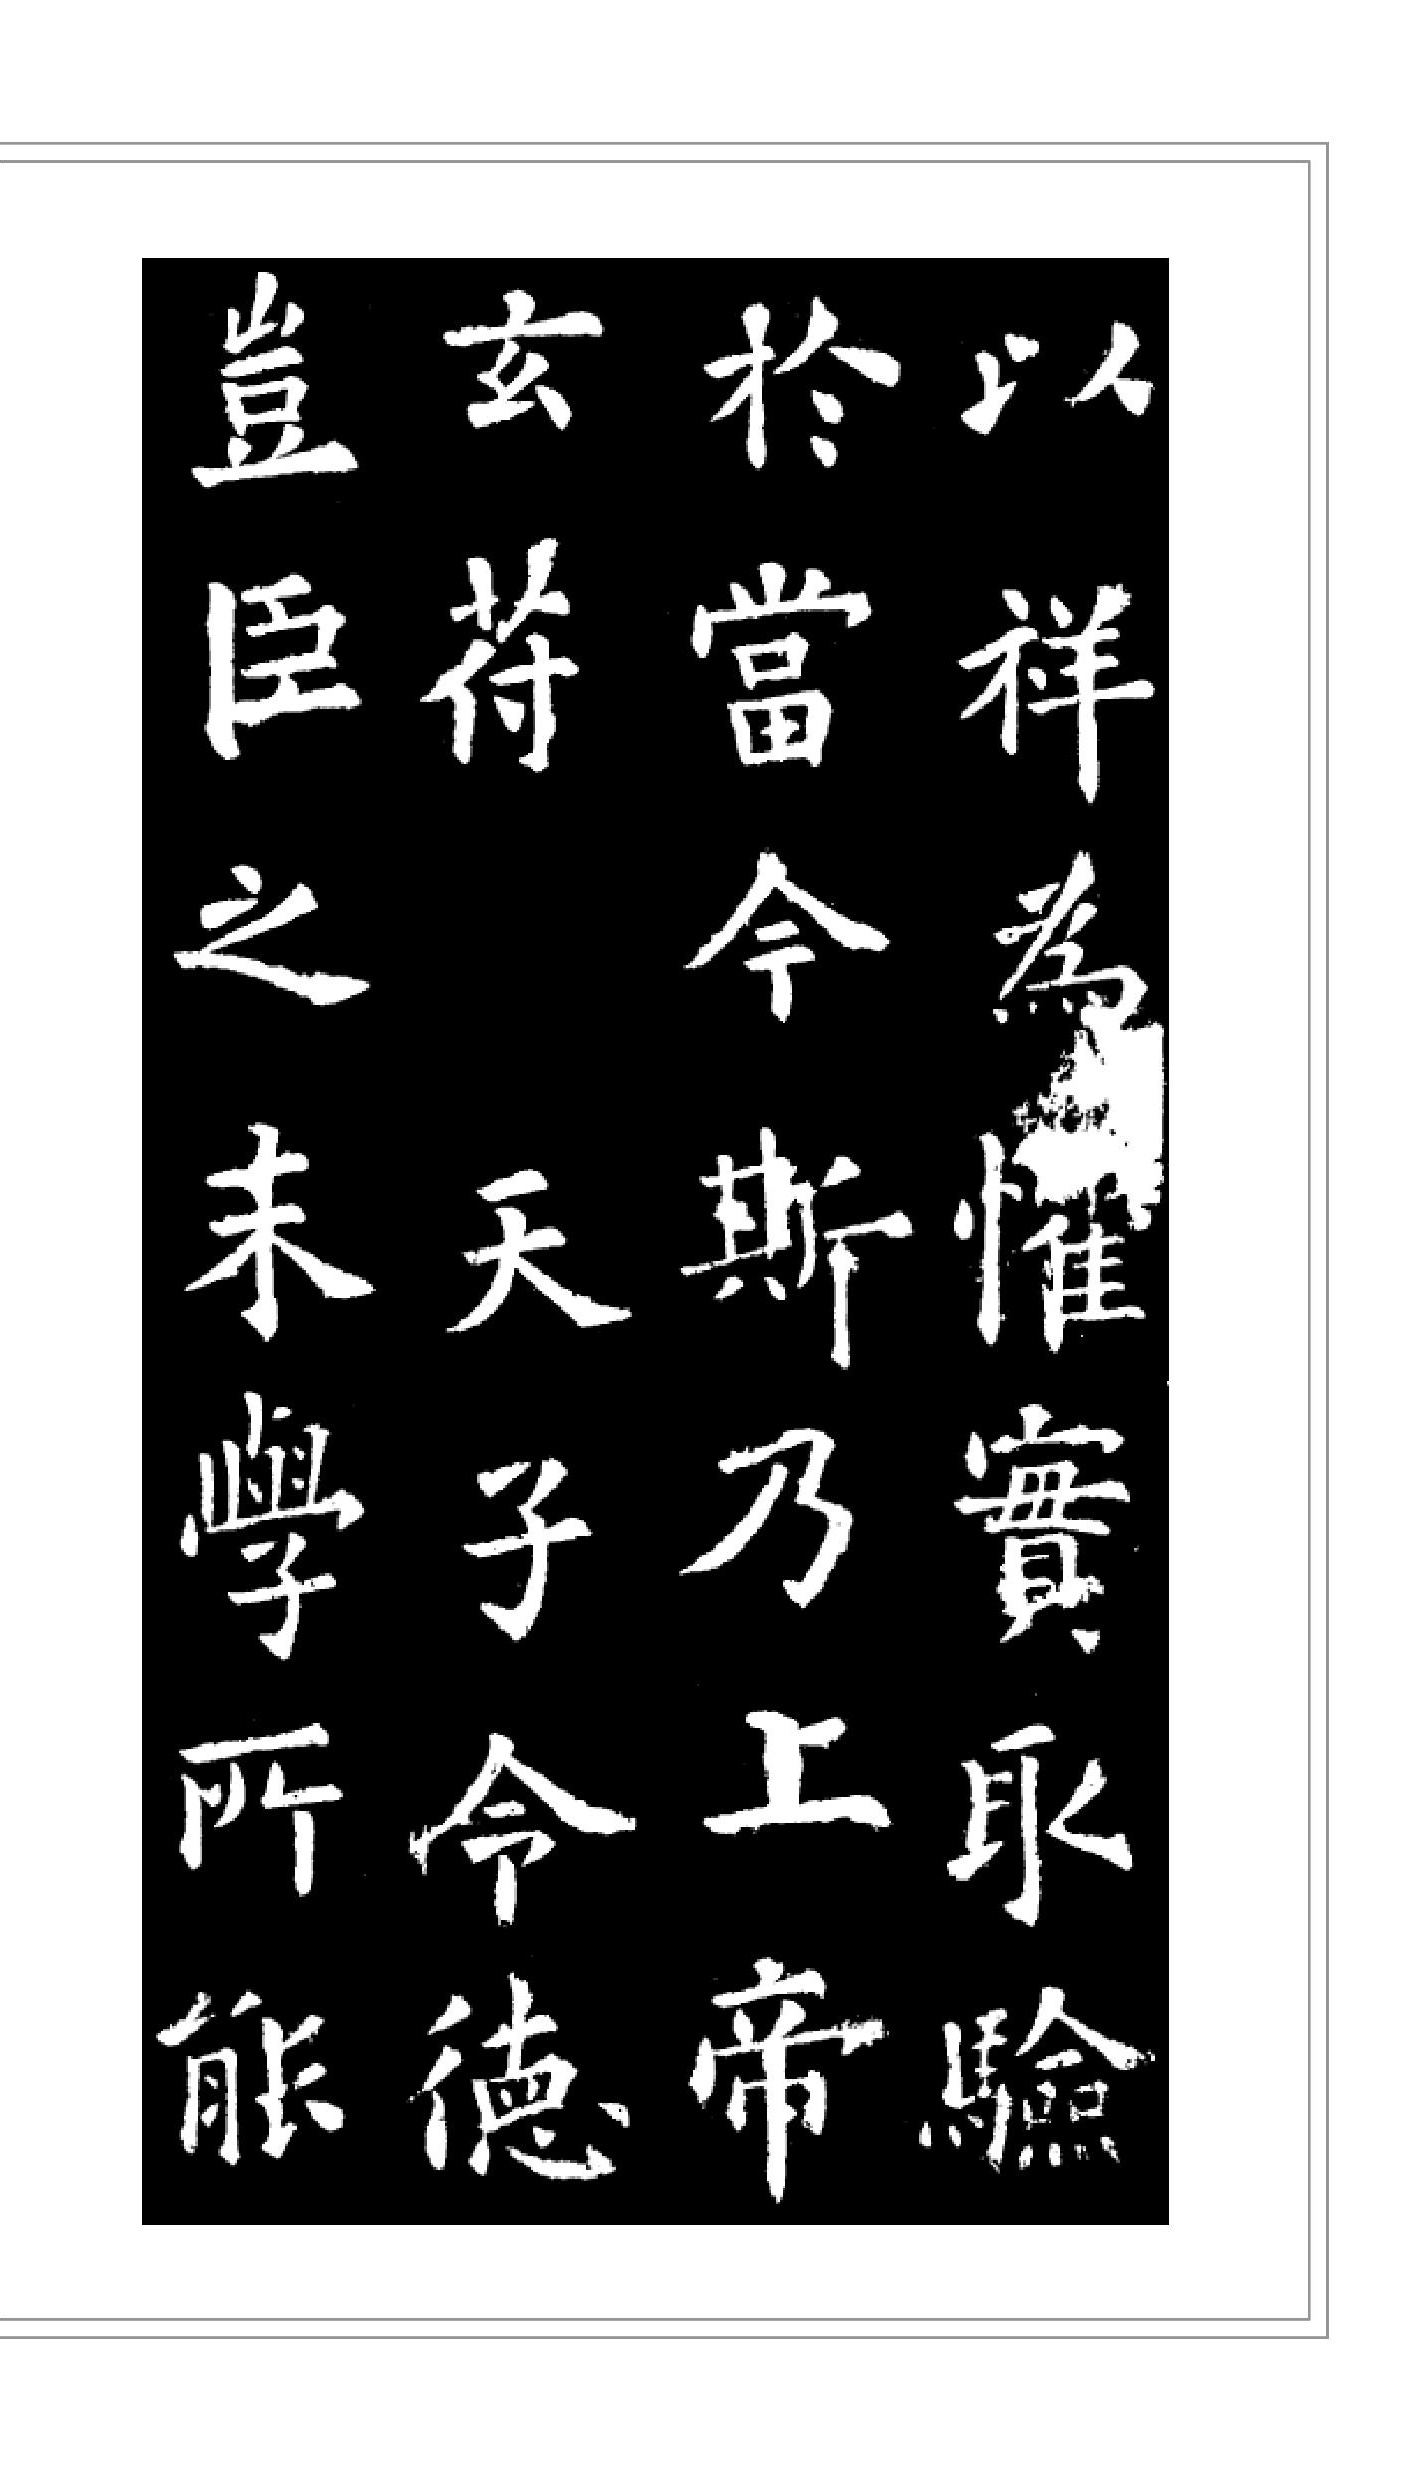 以祥為惟實取驗
於當今斯乃上帝
玄符天子令德
豈臣之末學所能